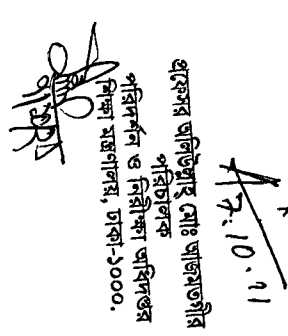 7.10.11
প্রফেসর অলিউল্লাহ্ মোঃ আজমতগীর
পরিচালক
পরিদর্শন ও নিরীক্ষা অধিদপ্তর
শিক্ষা মন্ত্রণালয়, ঢাকা-১০০০.